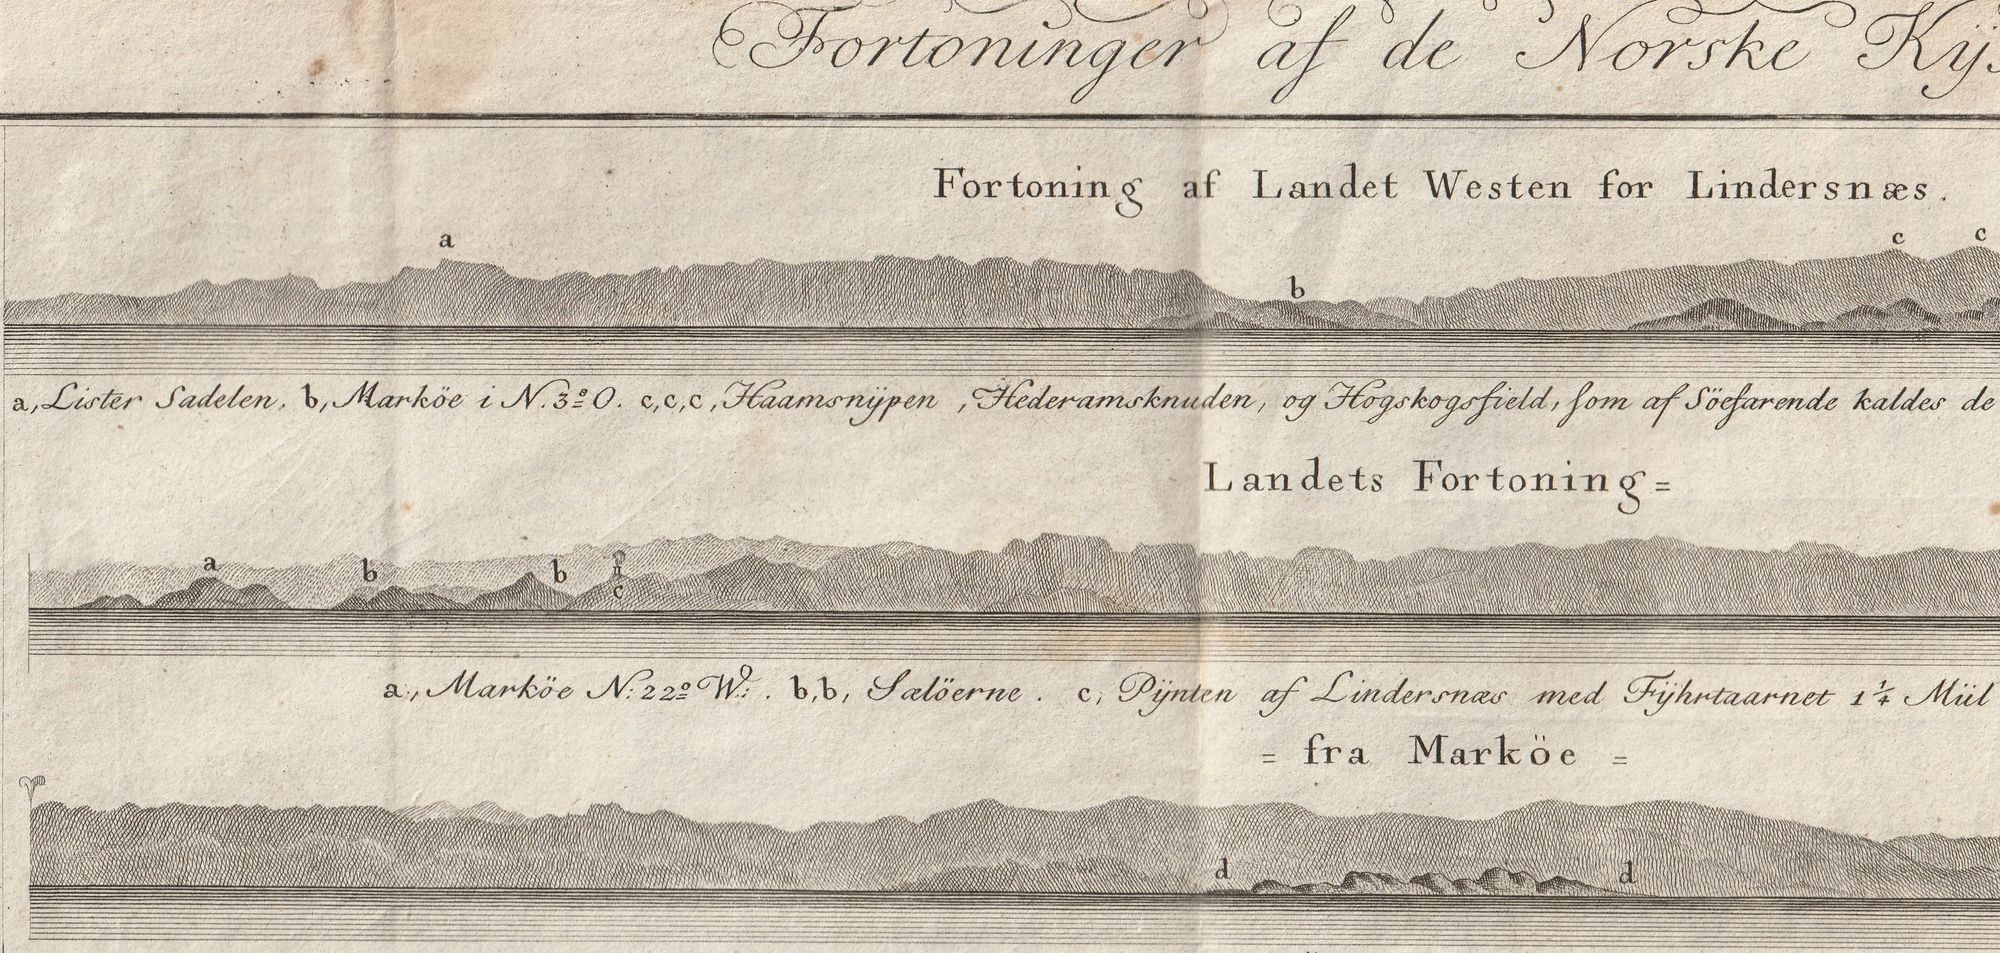 Fortoninger af de Norske
Fortoning af Landet Westen for Lindersnæs.
a
b
c c
a, Lister Sadelen. b, Marköe i N. 3º O. c,c,c, Haamsnÿpen, Hederamsknuden, og Hogskogsfield, som af Söefarende kaldes de
Landets Fortoning=
a b b
c
a, Marköe N: 22º W: . b,b, Sælöerne. c, Pÿnten af Lindersnæs med Fÿhrtaarnet 1 1/4 Miil
= fra Marköe =
d d